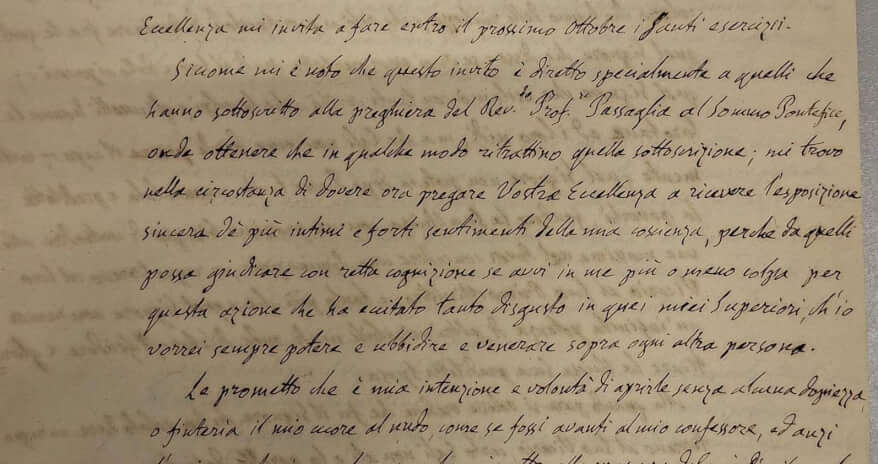 Eccellenza mi invita a fare entro il prossimo Ottobre i Santi esercizi.
Sicome mi è noto che questo invito è diretto specialmente a quelli che
hanno sottoscritto alla preghiera del Rev.do Prof.re Passaglia al Sommo Pontefice,
onde ottenere che in qualche modo ritrattino quella sottoscrizione; mi trovo
nella circostanza di dovere ora pregare Vostra Eccellenza a ricevere l'esposizione
sincera de' più intimi e forti sentimenti della mia coscienza, perchè da quelli
possa giudicare con retta cognizione se avvi in me più o meno colpa per
questa azione che ha eccitato tanto disgusto in quei miei Superiori, ch'io
vorrei sempre potere e ubbidire e venerare sopra ogni altra persona.
Le prometto che è mia intenzione e volontà di aprirle senza alcuna doppiezza,
o finteria il mio cuore al nudo, come se fossi avanti al mio confessore, ed anzi